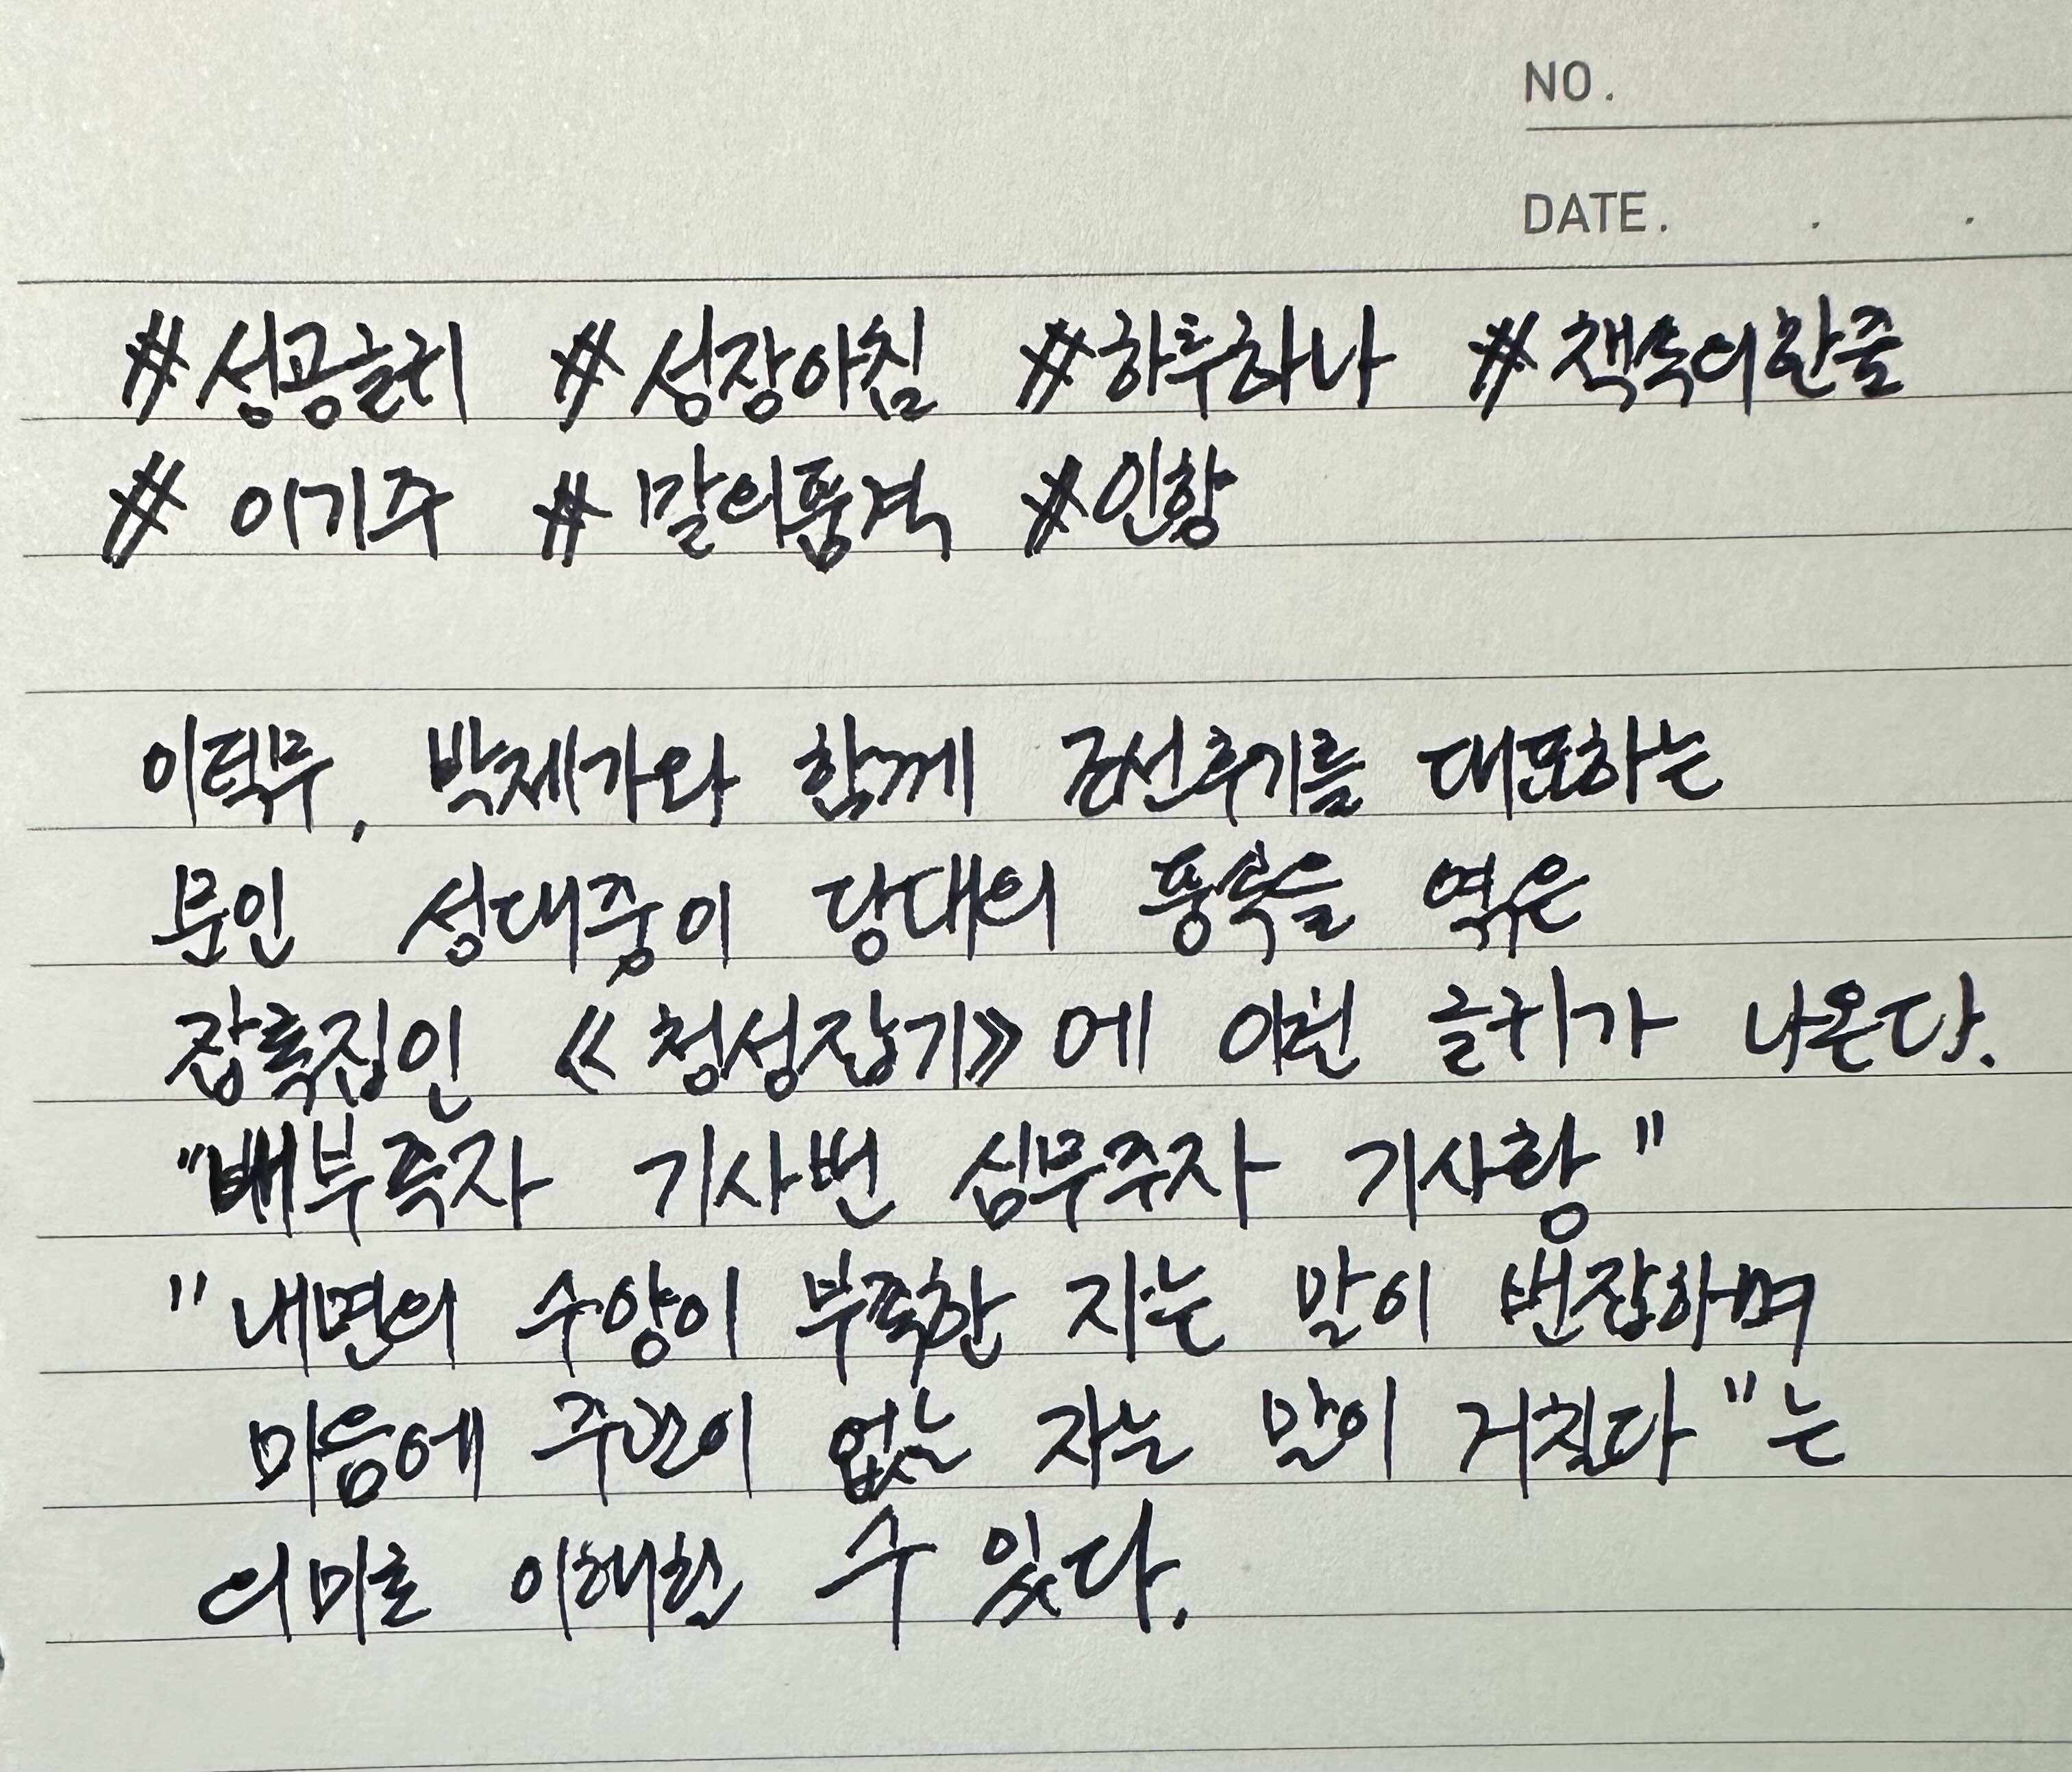 NO.
DATE. . .
#성공글귀 #성장아침 #하루하나 #책속의한줄
# 이기주 #말의품격 #인향
이덕무, 박제가와 함께 조선후기를 대표하는
문인 성대중이 당대의 풍속을 엮은
잡록집인 《청성잡기》에 이런 글귀가 나온다.
"배부족자 기사번 심무주자 기사황"
"내면의 수양이 부족한 자는 말이 번잡하며
마음에 주관이 없는 자는 말이 거칠다"는
의미로 이해할 수 있다.